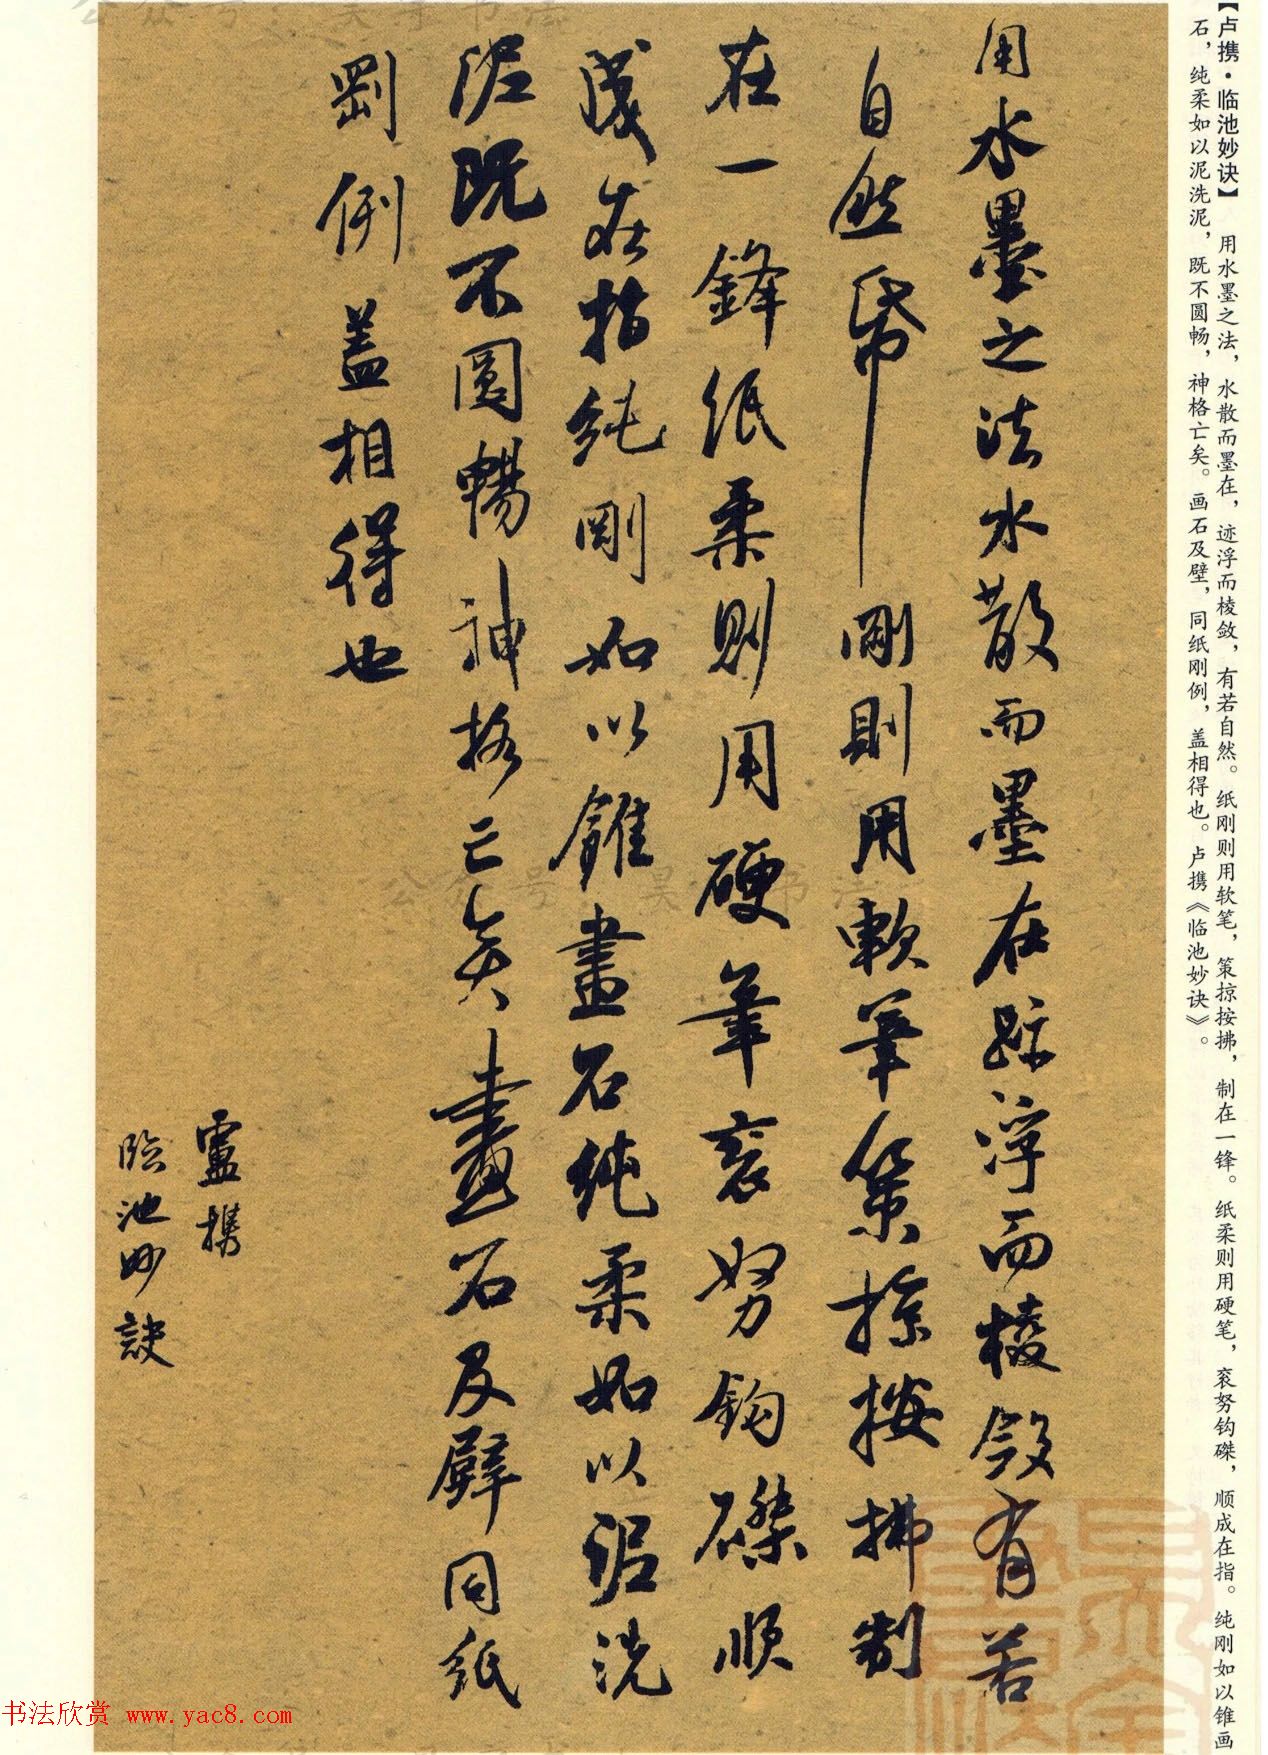 【卢携·临池妙诀】 用水墨之法，水散而墨在，迹浮而棱敛，有若自然。纸刚则用软笔，策掠按拂，制在一锋。纸柔则用硬笔，衮努钩磔，顺成在指。纯刚如以锥画
石，纯柔如以泥洗泥，既不圆畅，神格亡矣。画石及壁，同纸刚例，盖相得也。卢携《临池妙诀》。
用水墨之法水散而墨在跡浮而棱斂有若
自然紙剛則用軟筆策掠按拂制
在一鋒紙柔則用硬筆衮努鈎磔順
成在指純剛如以錐畫石純柔如以泥洗
泥既不圓暢神格亡矣畫石及壁同紙
剛例蓋相得也
盧携
臨池妙訣
书法欣赏 www.yac8.com